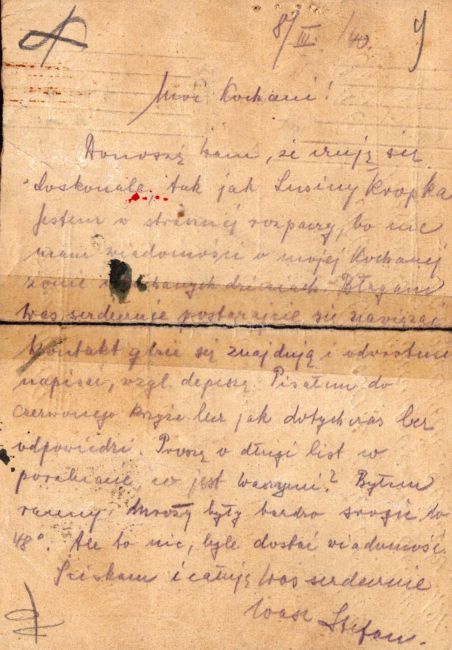 8/III./40.
Moi Kochani!
Donoszę Wam, że czuję się
doskonale, tak jak Lusiny Kropka
Jestem w strasznej rozpaczy, bo nie
mam wiadomości o mojej Kochanej
żonie i dzieciach. Błagam
Was serdecznie postarajcie się nawiązać
Kontakt gdzie się znajdują i odwrotnie
napisać, wzgl. depeszą. Pisałem do
Czerwonego Krzyża lecz jak dotychczas bez
odpowiedzi. Proszę o długi list w
co jest Waszymi? Byłem
ranny, mrozy były bardzo srogie do
48°. Ale to nic, byle dostać wiadomość.
Ściskam i całuję Was serdecznie
Wasz Stefan.